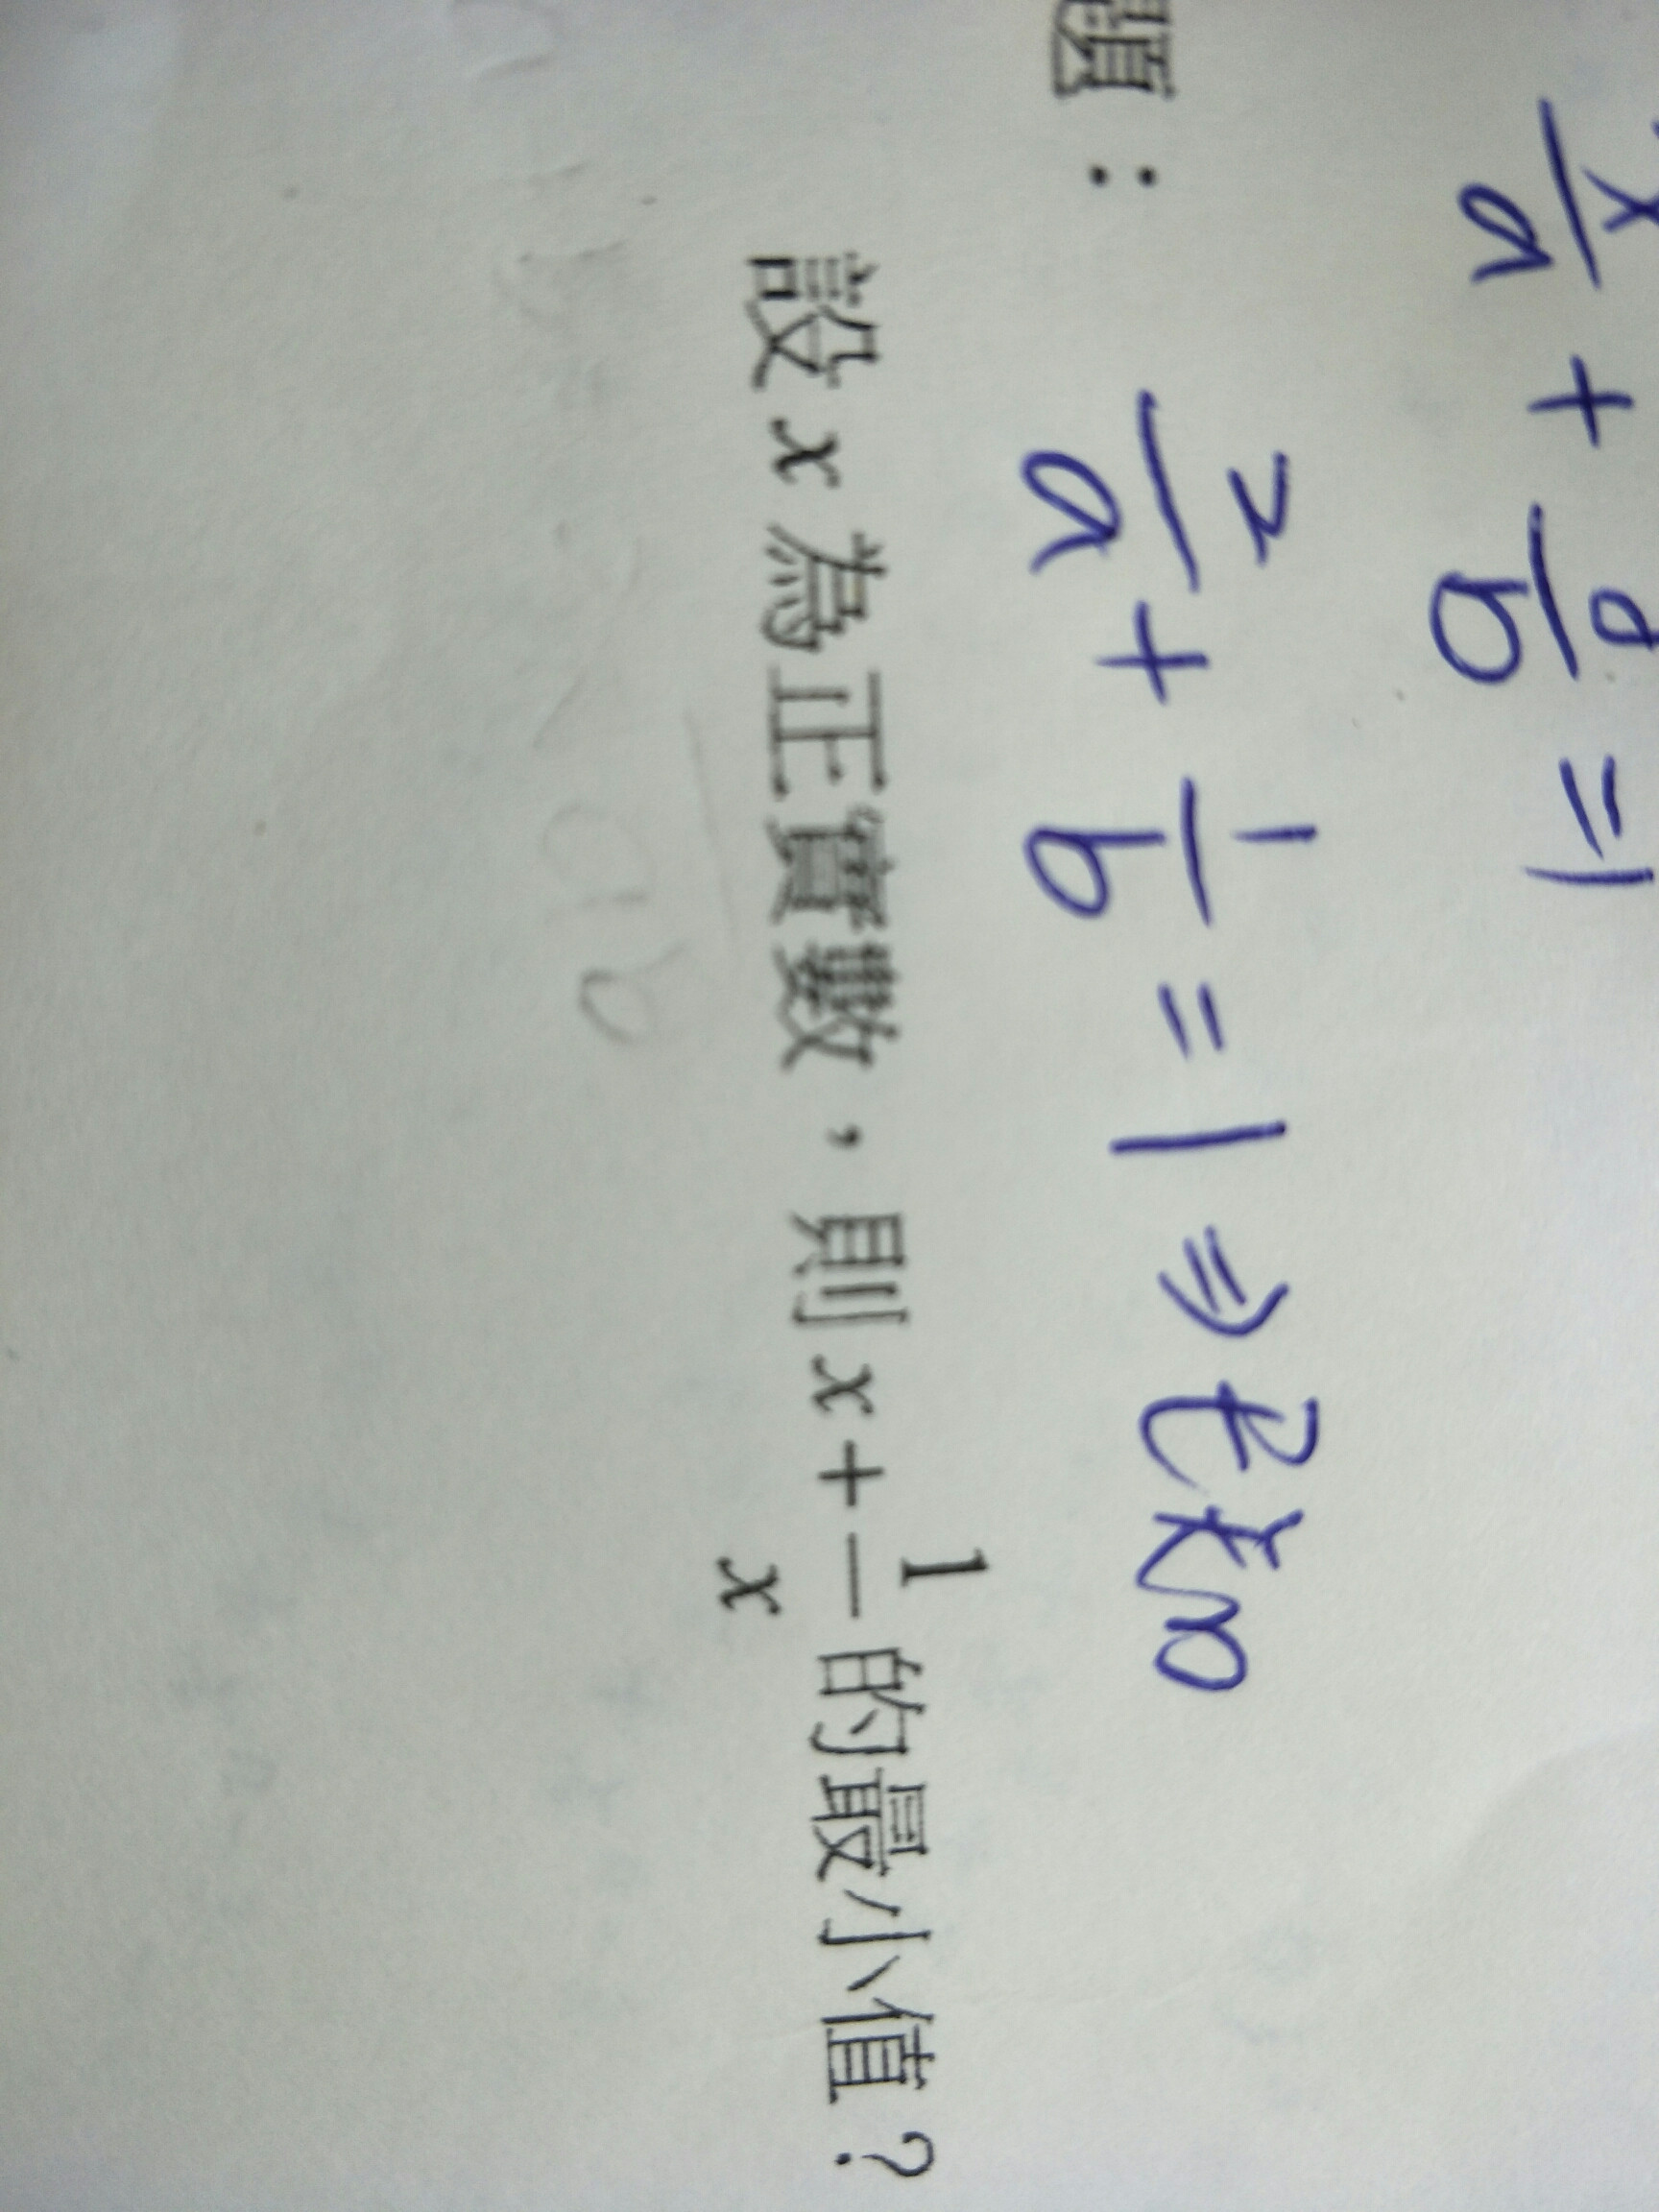 x/a + 0/b = 1
題：
2/a + 1/b = 1 ⇒
設 x 為正實數，則 x + 1/x 的最小值？